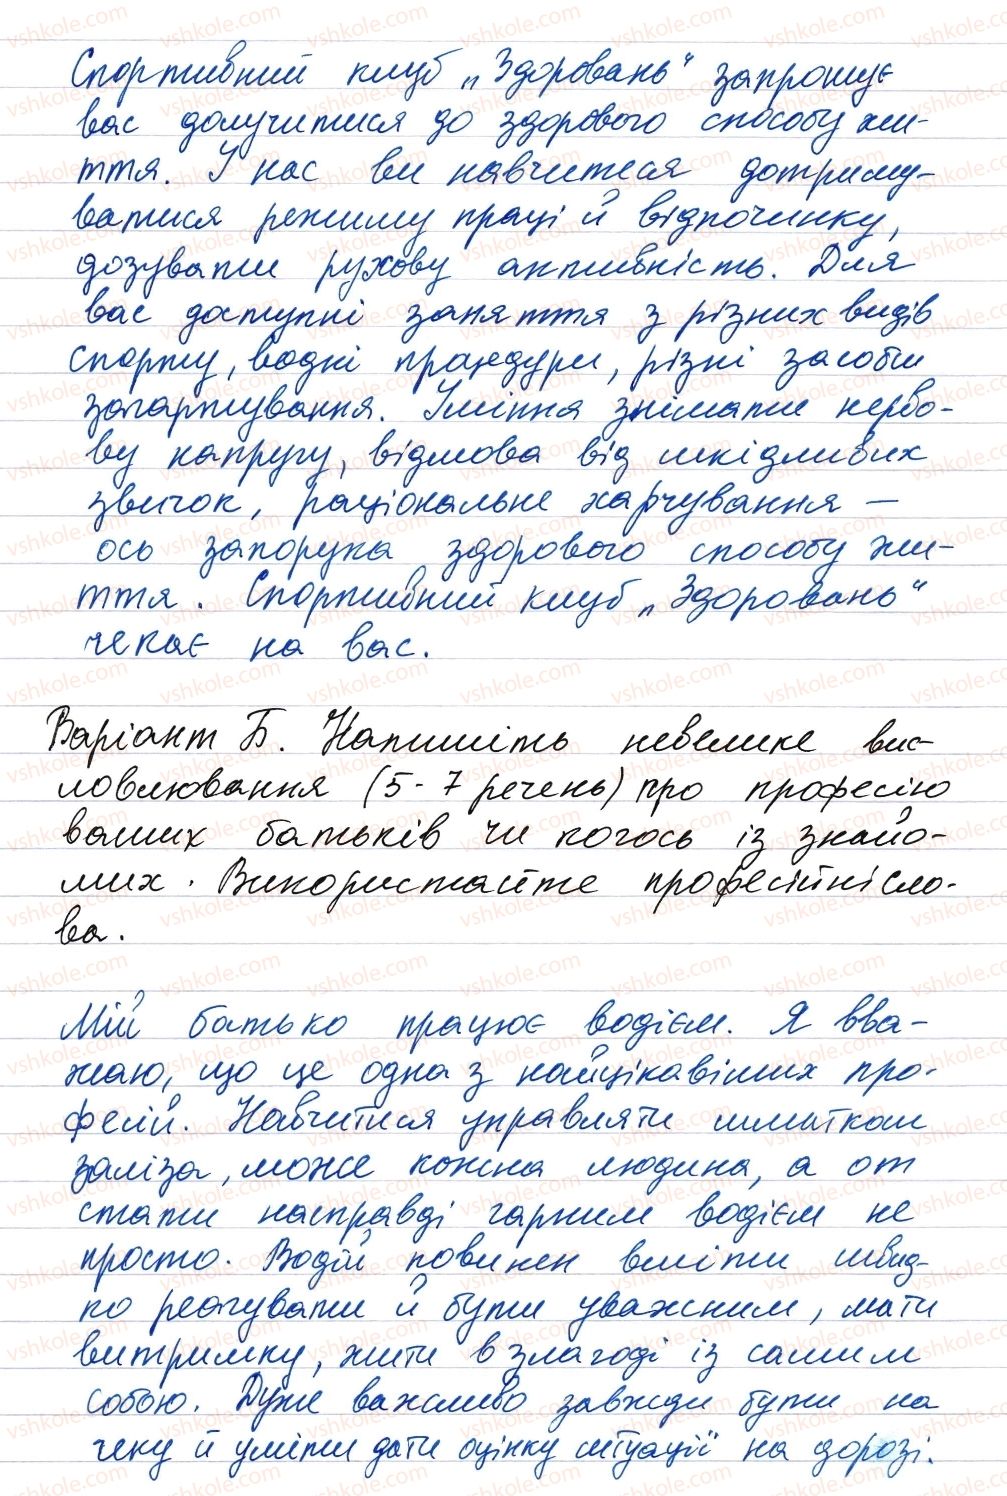 Спортивний клуб „Здоровань“ запрошує
вас долучитися до здорового способу жи-
ття. У нас ви навчитеся дотриму-
ватися режиму праці й відпочинку,
дозувати рухову активність. Для
вас доступні заняття з різних видів
спорту, водні процедури, різні засоби
загартування. Уміння знімати нерво-
ву напругу, відмова від шкідливих
звичок, раціональне харчування —
ось запорука здорового способу жи-
ття. Спортивний клуб „Здоровань“
чекає на вас.
Варіант Б. Напишіть невелике вис-
ловлювання (5-7 речень) про професію
ваших батьків чи когось із знайо-
мих. Використайте професійні сло-
ва.
Мій батько працює водієм. Я вва-
жаю, що це одна з найцікавіших про-
фесій. Навчитися управляти шматком
заліза, може кожна людина, а от
стати насправді гарним водієм не
просто. Водій повинен вміти швид-
ко реагувати й бути уважним, мати
витримку, жити в злагоді із самим
собою. Дуже важливо завжди бути на
чеку й уміти дати оцінку ситуації на дорозі.